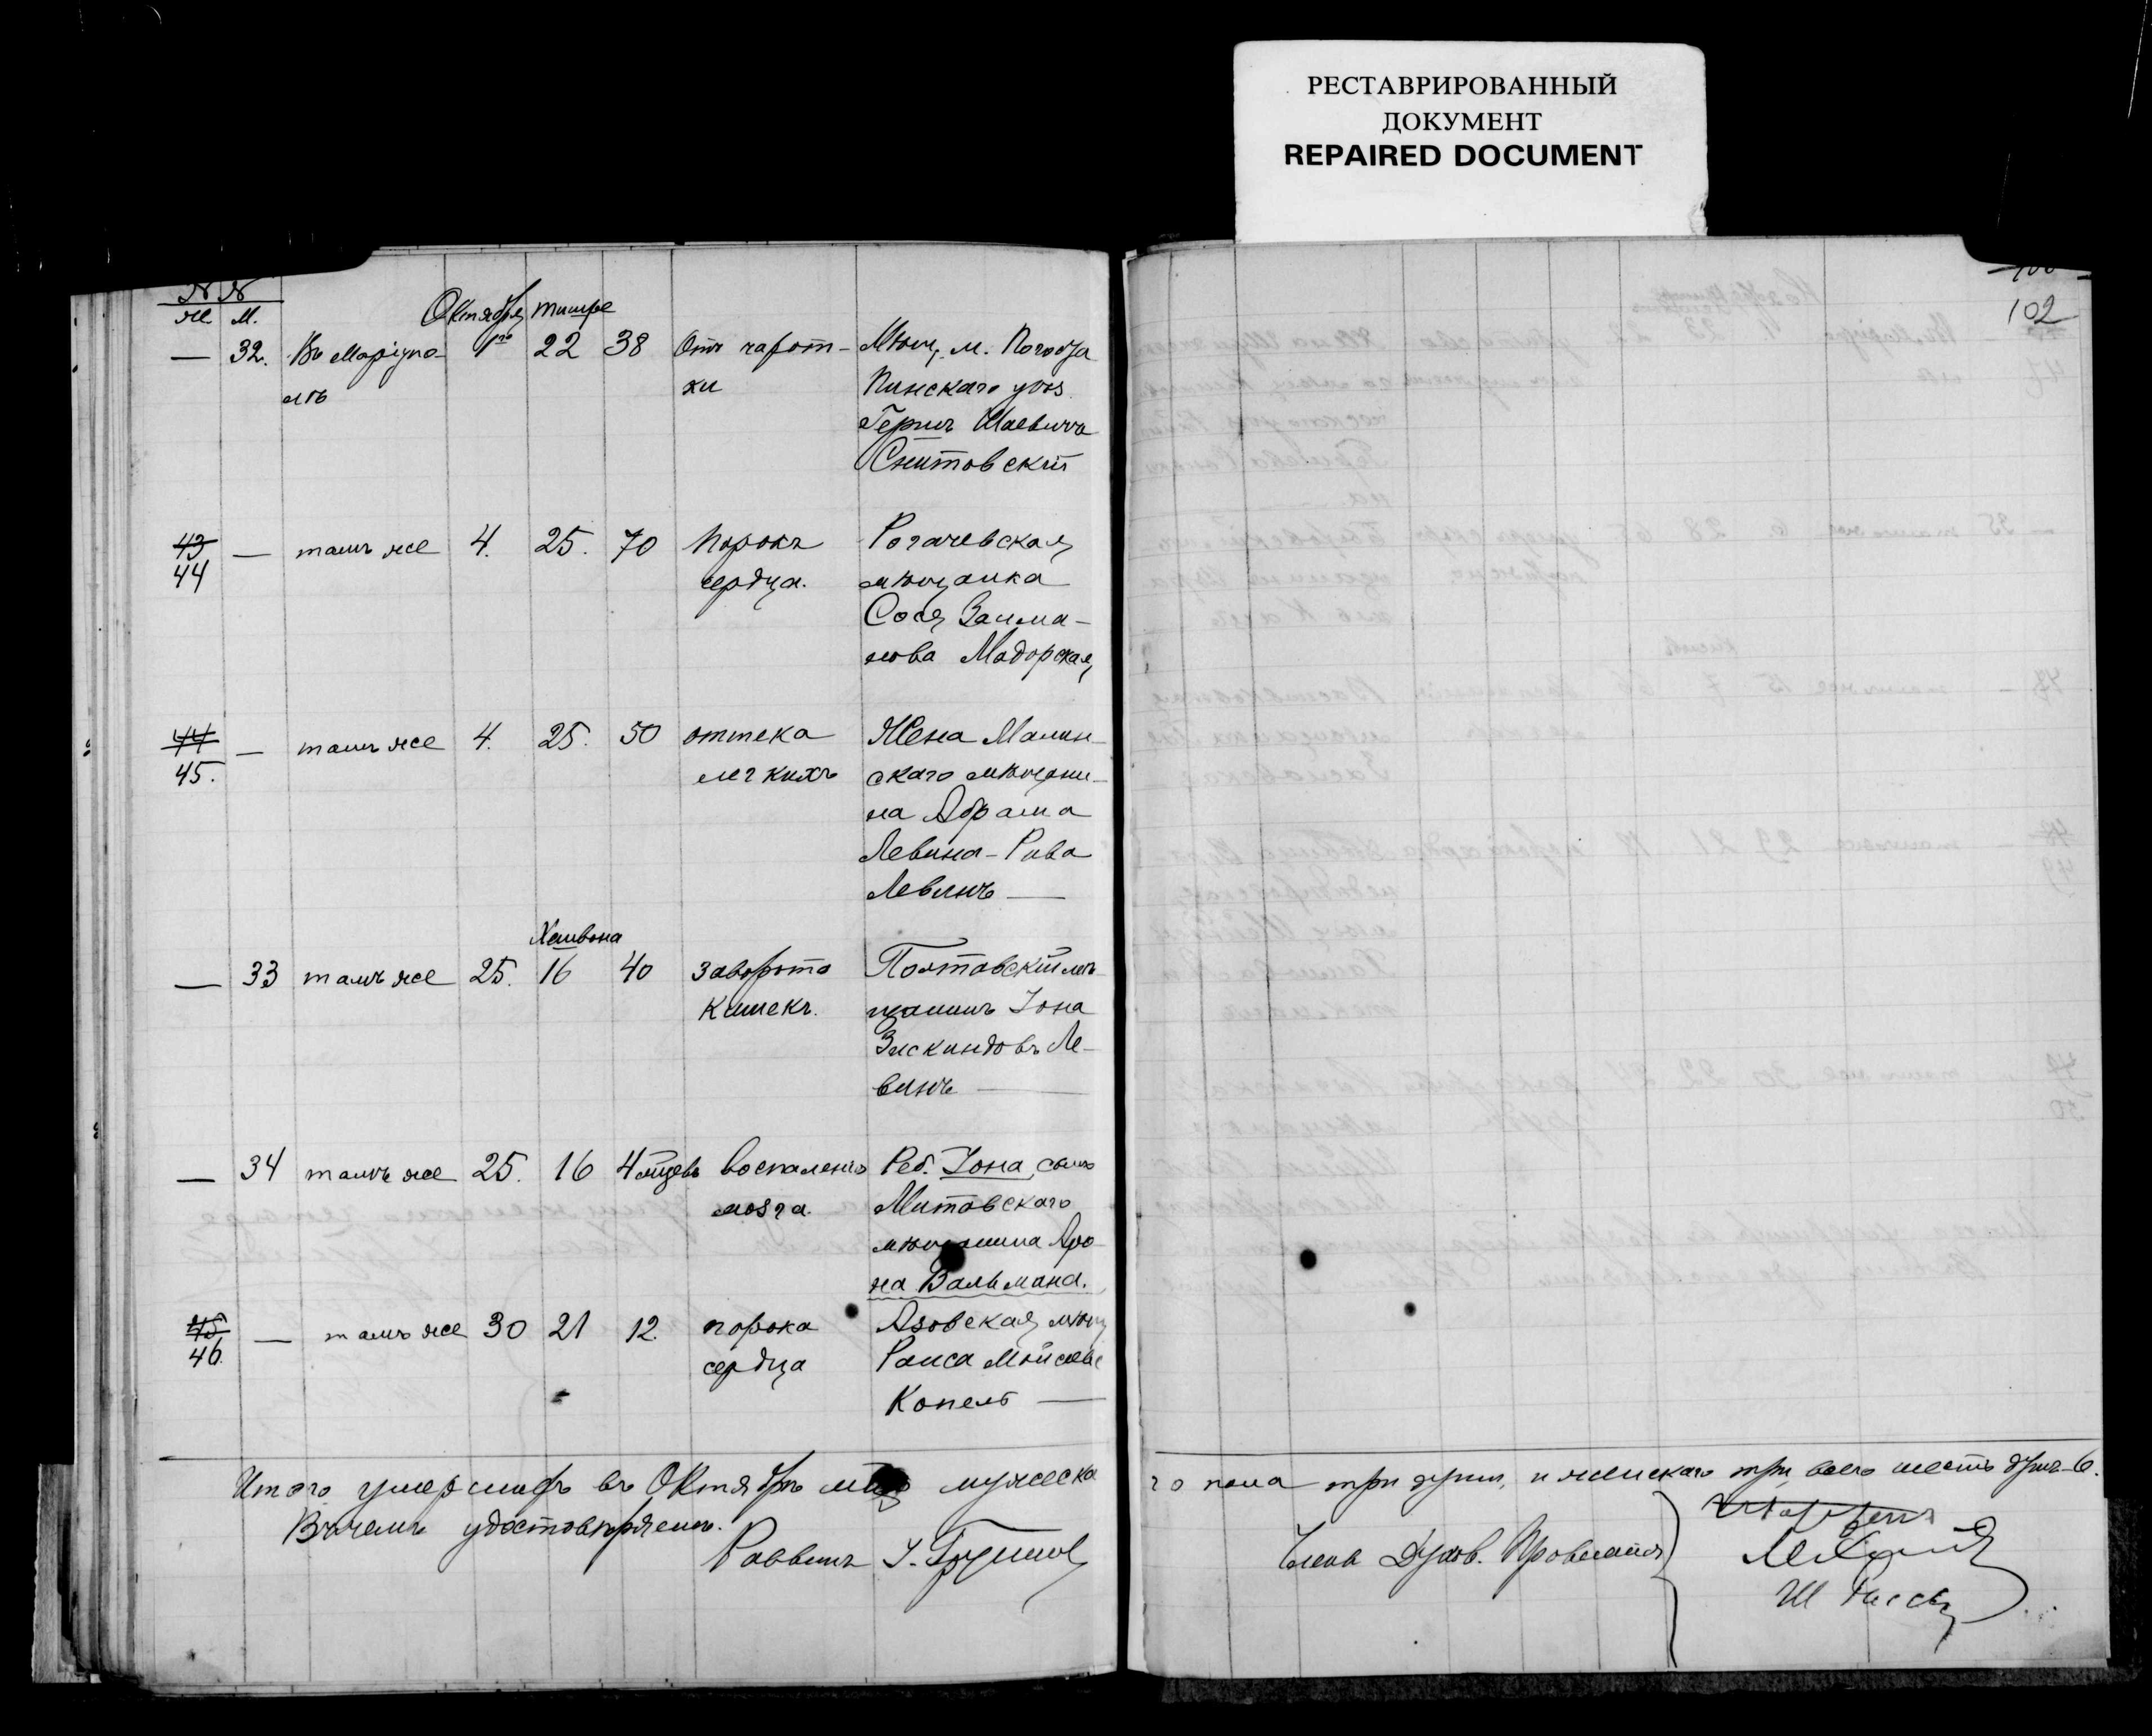 РЕСТАВРИРОВАННЫЙ
ДОКУМЕНТ
REPAIRED DOCUMENT
102
№ №
ж. м.
Октября тишре
— 32. Въ Маріупо- 1го 22 38 Отъ чахот- Мѣщ. м. Погоста
лѣ ки Пинскаго уѣз.
Гершъ Шаевичъ
Снитовскій
43 — тамъ же 4. 25. 70 порокъ Рогачевская
44 сердца. мѣщанка
Сося Залма-
нова Мадорская
44 — тамъ же 4. 25. 50 оттека Жена Малин-
45. легкихъ скаго мѣщани-
на Абрама
Левина - Рива
Левинъ —
Хешвона
— 33 тамъ же 25. 16 40 заворота Полтавскій мѣ-
кишекъ. щанинъ Іона
Зискиндовъ Ле-
винъ —
— 34 тамъ же 25. 16 4 мѣсцевъ воспаленіе Реб. Іона, сынъ
мозга. Митавскаго
мѣщанина Аро-
на Вальмана.
45 — тамъ же 30 21 12. порока Азовская мѣщ
46. сердца Раиса Мойсеев
Копель —
Итого умершихъ въ Октябрѣ мужеска
го пола три души, и женскаго три, всего шесть душъ-6.
В чемъ удостовѣряемъ.
Раввинъ
Члены Духов. Правленія
Ш